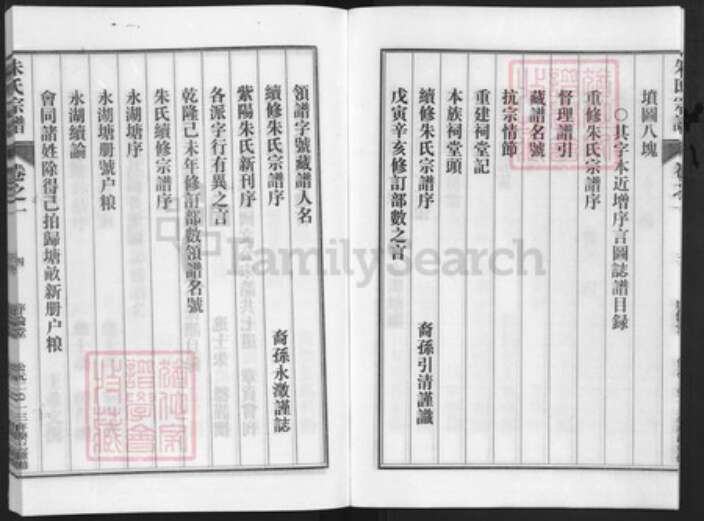 朱氏宗譜
卷之一
墳圖八塊
○其字本近增序言圖誌譜目錄
重修朱氏宗譜序
督理譜引
藏譜名號
抗宗情節
重建祠堂記
本族祠堂頭
續修朱氏宗譜序 裔孫引清謹識
戊寅辛亥修訂部數之言
領譜字號藏譜人名
續修朱氏宗譜序 裔孫永澂謹誌
紫陽朱氏新刊序
各派字行有異之言
乾隆己未年修訂部數領譜名號
朱氏續修宗譜序
永湖塘序
永湖塘册號户粮
永湖續論
會同諸姓除得己拍歸塘畝新册户粮
朱氏宗譜
卷之一
四
FamilySearch